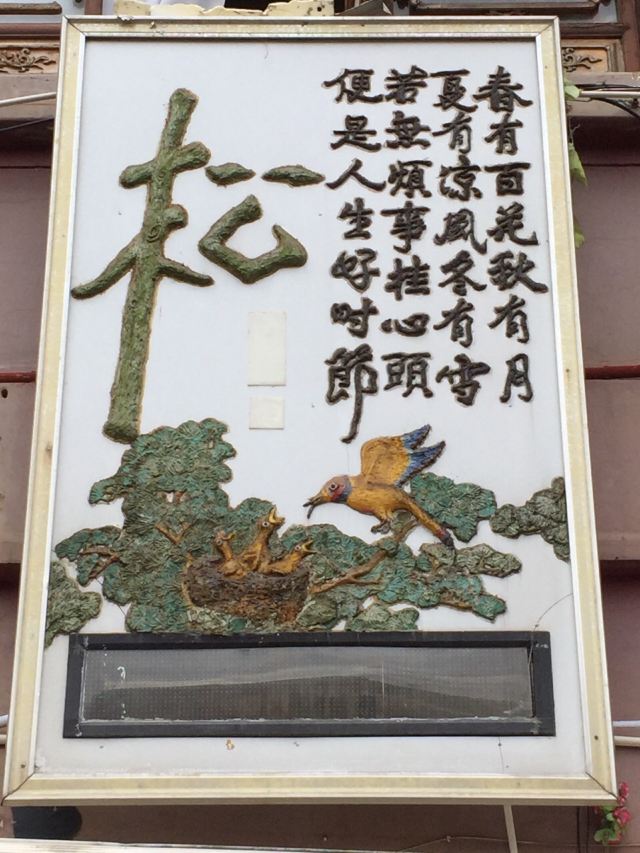 春有百花秋有月
夏有涼風冬有雪
若無煩事挂心頭
便是人生好时節
松